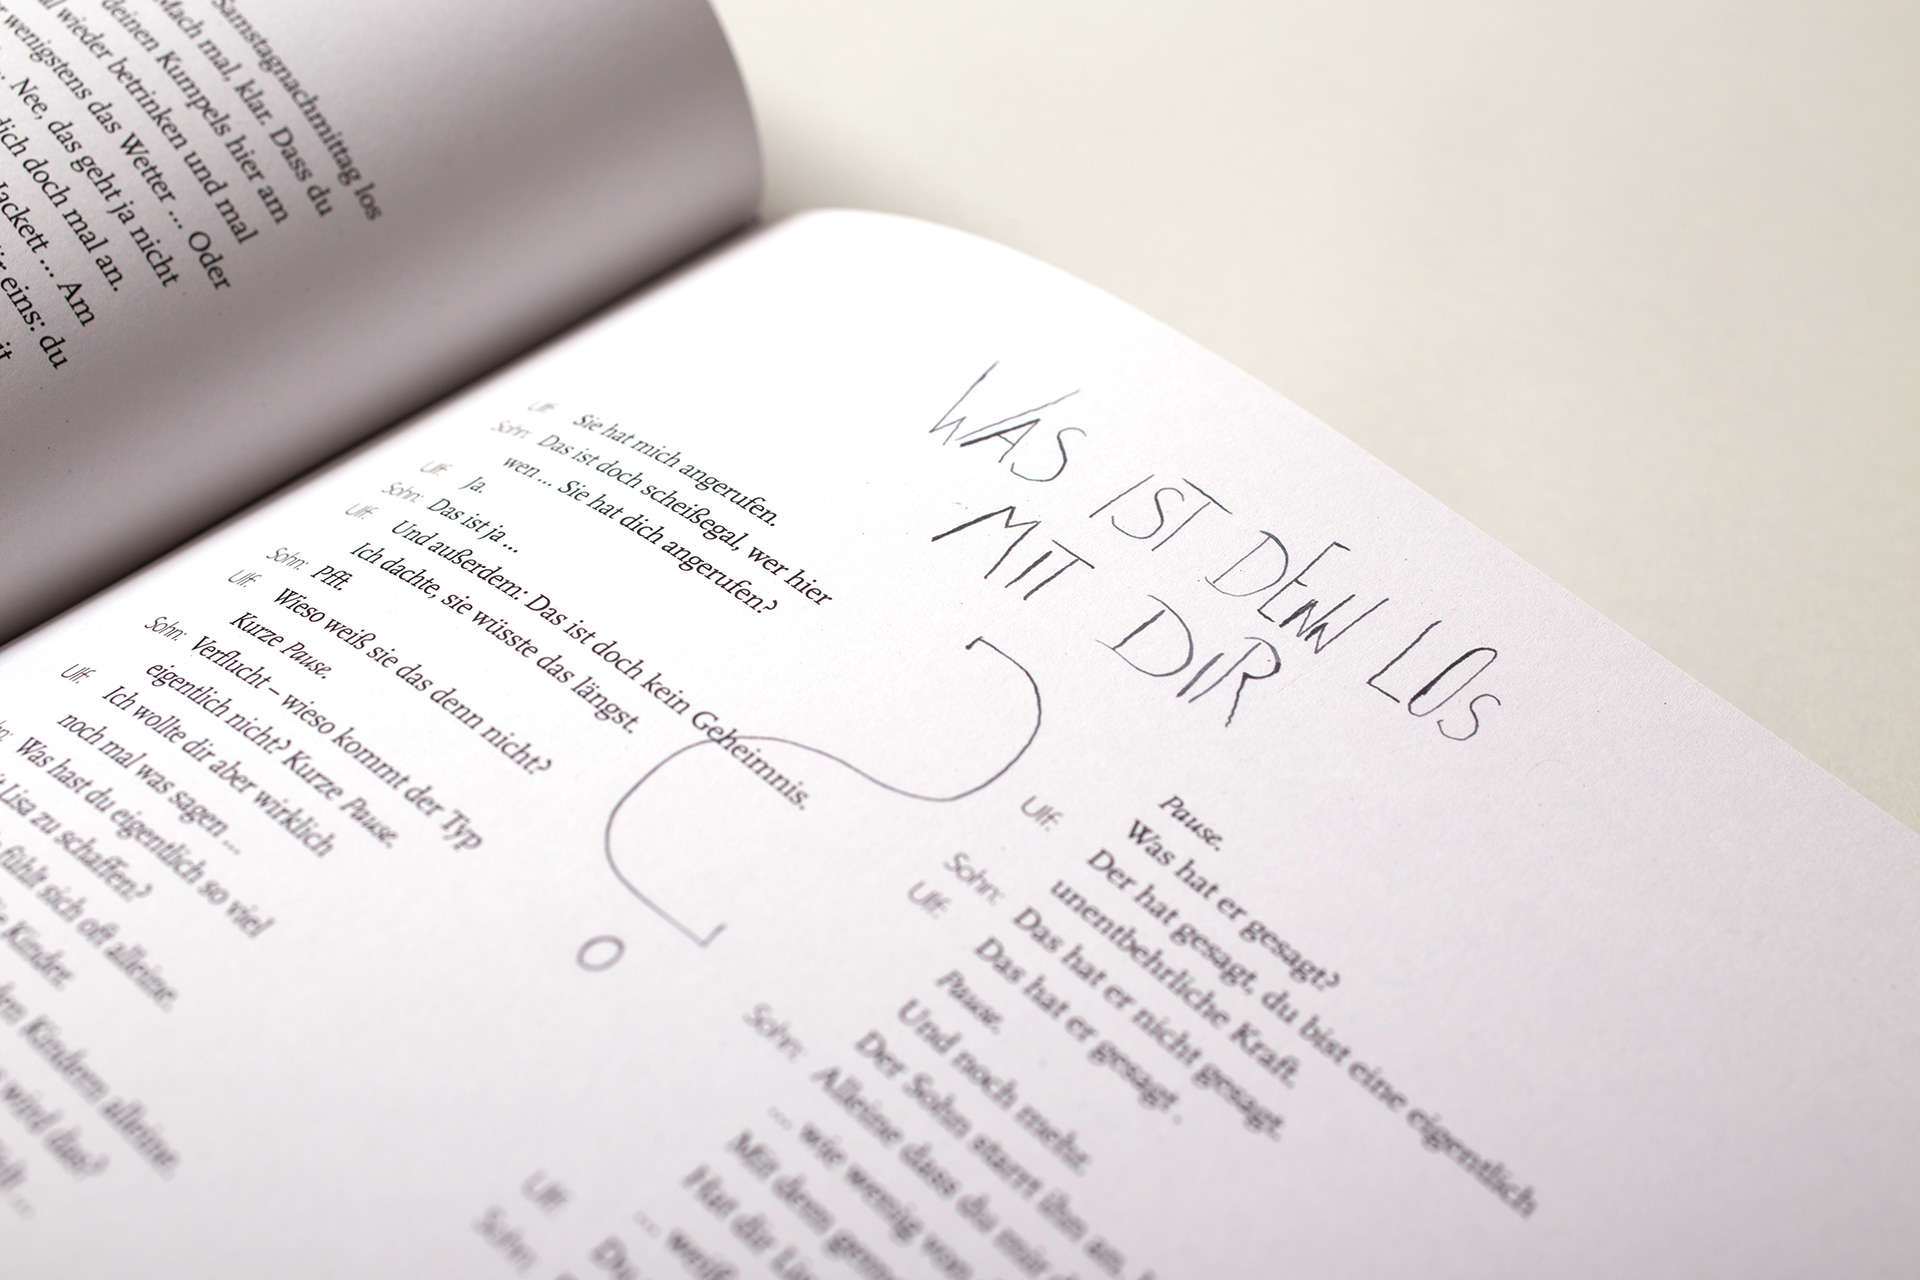 Samstagnachmittag los
Mach mal, klar. Dass du
deinen Kumpels hier am
wieder betrinken und mal
wenigstens das Wetter ... Oder
Nee, das geht ja nicht
dich doch mal an.
Jackett ... Am
eins: du
WAS IST DENN LOS
MIT DIR
?
Ulf: Sie hat mich angerufen.
Sohn: Das ist doch scheißegal, wer hier
wen ... Sie hat dich angerufen?
Ulf: Ja.
Sohn: Das ist ja ...
Ulf: Und außerdem: Das ist doch kein Geheimnis.
Ich dachte, sie wüsste das längst.
Sohn: Pfft.
Ulf: Wieso weiß sie das denn nicht?
Kurze Pause.
Sohn: Verflucht – wieso kommt der Typ
eigentlich nicht? Kurze Pause.
Ulf: Ich wollte dir aber wirklich
noch mal was sagen ...
Was hast du eigentlich so viel
Lisa zu schaffen?
fühlt sich oft alleine.
Kinder.
den Kindern alleine.
wird das?
Pause.
Ulf: Was hat er gesagt?
Der hat gesagt, du bist eine eigentlich
unentbehrliche Kraft.
Sohn: Das hat er nicht gesagt.
Ulf: Das hat er gesagt.
Pause.
Und noch mehr.
Der Sohn starrt ihn an.
Sohn: Alleine dass du mir
... wie wenig von
Mit dem
Hat dir
Ulf:
Sohn: